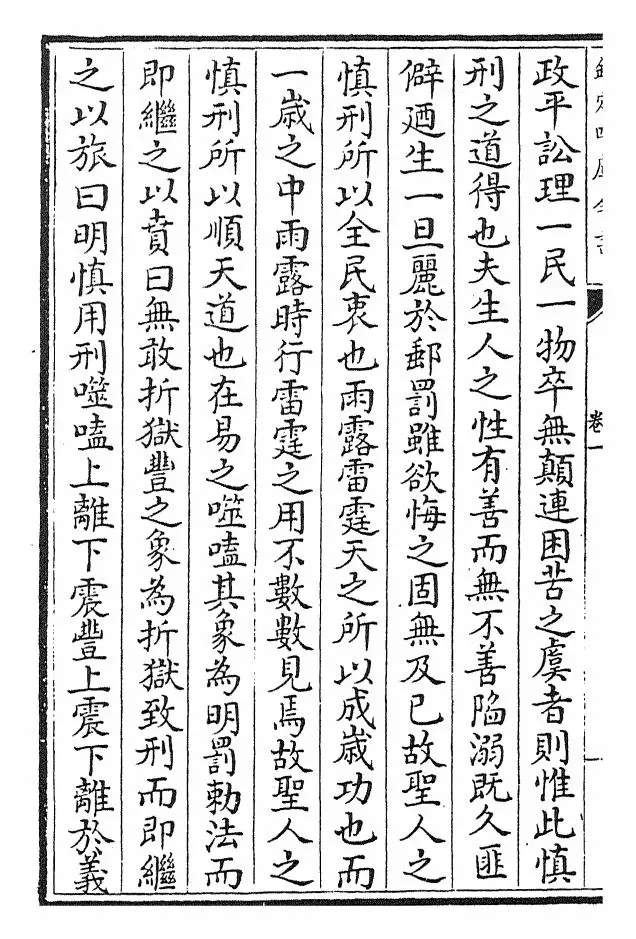 欽定四庫全書
卷一
政平訟理一民一物卒無顛連困苦之虞者則惟此慎
刑之道得也夫生人之性有善而無不善陷溺既久匪
僻廼生一旦麗於郵罰雖欲悔之固無及已故聖人之
慎刑所以全民衷也雨露雷霆天之所以成歲功也而
一歲之中雨露時行雷霆之用不數數見焉故聖人之
慎刑所以順天道也在易之噬嗑其象為明罰勅法而
即繼之以賁曰無敢折獄豐之象為折獄致刑而即繼
之以旅曰明慎用刑噬嗑上離下震豐上震下離於義